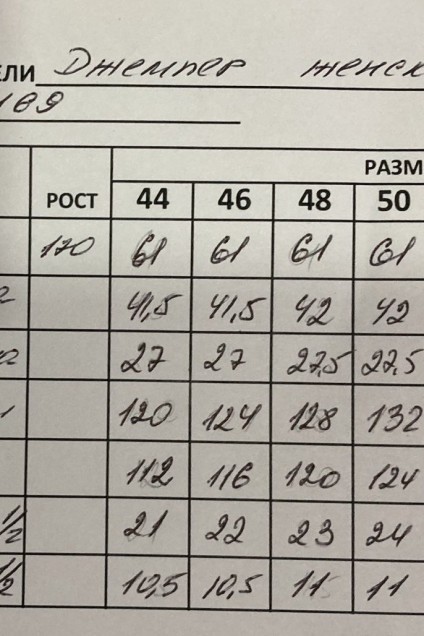 ЕЛИ Джемпер женск
169
РАЗМ
РОСТ 44 46 48 50
170 61 61 61 61
41,5 41,5 42 42
27 27 27,5 27,5
120 124 128 132
112 116 120 124
1/2 21 22 23 24
1/2 10,5 10,5 11 11